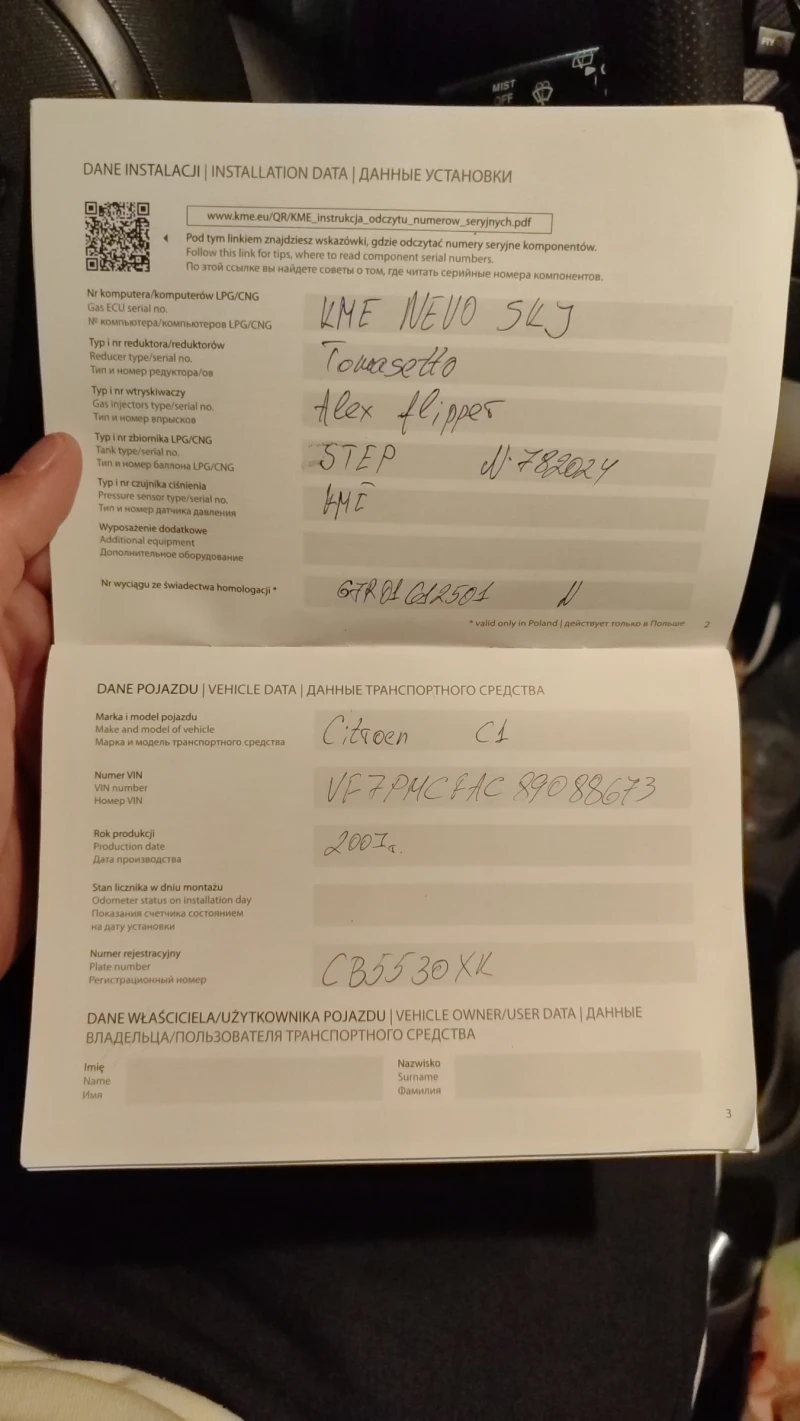 MIST
OFF
DANE INSTALACJI | INSTALLATION DATA | ДАННЫЕ УСТАНОВКИ
www.kme.eu/QR/KME_instrukcja_odczytu_numerow_seryjnych.pdf
Pod tym linkiem znajdziesz wskazówki, gdzie odczytać numery seryjne komponentów.
Follow this link for tips, where to read component serial numbers.
По этой ссылке вы найдете советы о том, где читать серийные номера компонентов.
Nr komputera/komputerów LPG/CNG
Gas ECU serial no.
№ компьютера/компьютеров LPG/CNG
KME NEVO SKY
Typ i nr reduktora/reduktorów
Reducer type/serial no.
Тип и номер редуктора/ов
Tomasetto
Typ i nr wtryskiwaczy
Gas injectors type/serial no.
Тип и номер впрысков
Alex flipper
Typ i nr zbiornika LPG/CNG
Tank type/serial no.
Тип и номер баллона LPG/CNG
STEP N. 782024
Typ i nr czujnika ciśnienia
Pressure sensor type/serial no.
Тип и номер датчика давления
KME
Wyposażenie dodatkowe
Additional equipment
Дополнительное оборудование
Nr wyciągu ze świadectwa homologacji *
67R01 612501 N
* valid only in Poland | действует только в Польше 2
DANE POJAZDU | VEHICLE DATA | ДАННЫЕ ТРАНСПОРТНОГО СРЕДСТВА
Marka i model pojazdu
Make and model of vehicle
Марка и модель транспортного средства
Citroen C1
Numer VIN
VIN number
Номер VIN
VF7PMCFAC89088673
Rok produkcji
Production date
Дата производства
2007г.
Stan licznika w dniu montażu
Odometer status on installation day
Показания счетчика состоянием
на дату установки
Numer rejestracyjny
Plate number
Регистрационный номер
CB5530XK
DANE WŁAŚCICIELA/UŻYTKOWNIKA POJAZDU | VEHICLE OWNER/USER DATA | ДАННЫЕ
ВЛАДЕЛЬЦА/ПОЛЬЗОВАТЕЛЯ ТРАНСПОРТНОГО СРЕДСТВА
Imię
Name
Имя
Nazwisko
Surname
Фамилия
3